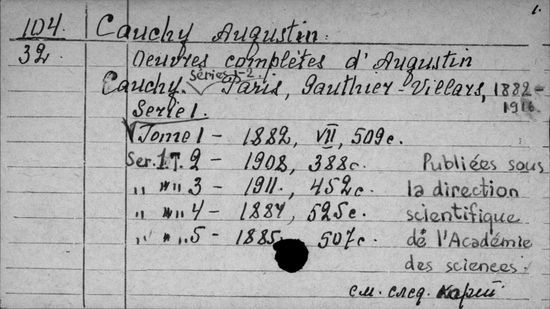 1.
104. Cauchy Augustin.
32. Oeuvres complètes d'Augustin
Cauchy. Séries 1-2. Paris, Gauthier-Villars, 1882-
Serie 1.
Tome 1 - 1882, VII, 509c.
Ser. 1 T. 2 - 1908, 388c.
" " 3 - 1911, 452c.
" " 4 - 1884, 525c.
" " 5 - 1885, 507c.
Publiées sous
la direction
scientifique
de l'Académie
des sciences.
см. след.